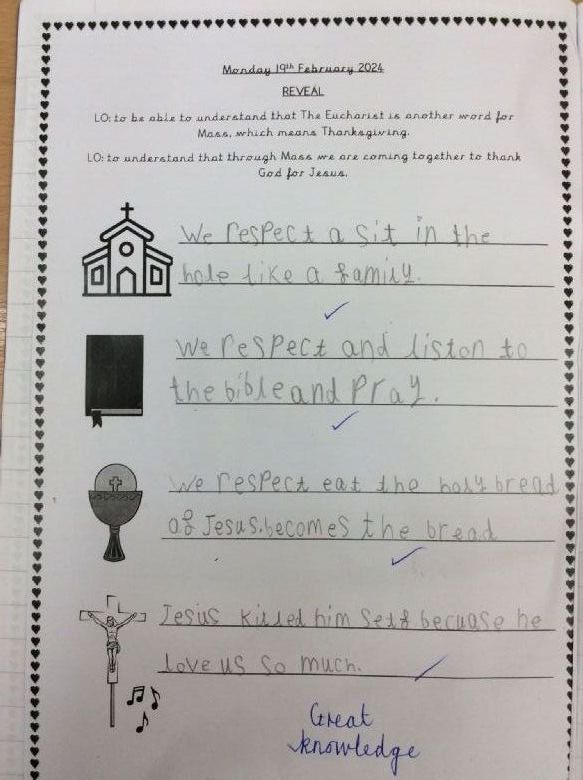 Monday 19th February 2024
REVEAL
LO: to be able to understand that The Eucharist is another word for
Mass, which means Thanksgiving.
LO: to understand that through Mass we are coming together to thank
God for Jesus.
We respect a sit in the
hole like a family.
We respect and liston to
the bible and pray.
We respect eat the holy bread
of Jesus.becomes the bread
Jesus killed him self becuase he
love us so much.
Great
knowledge